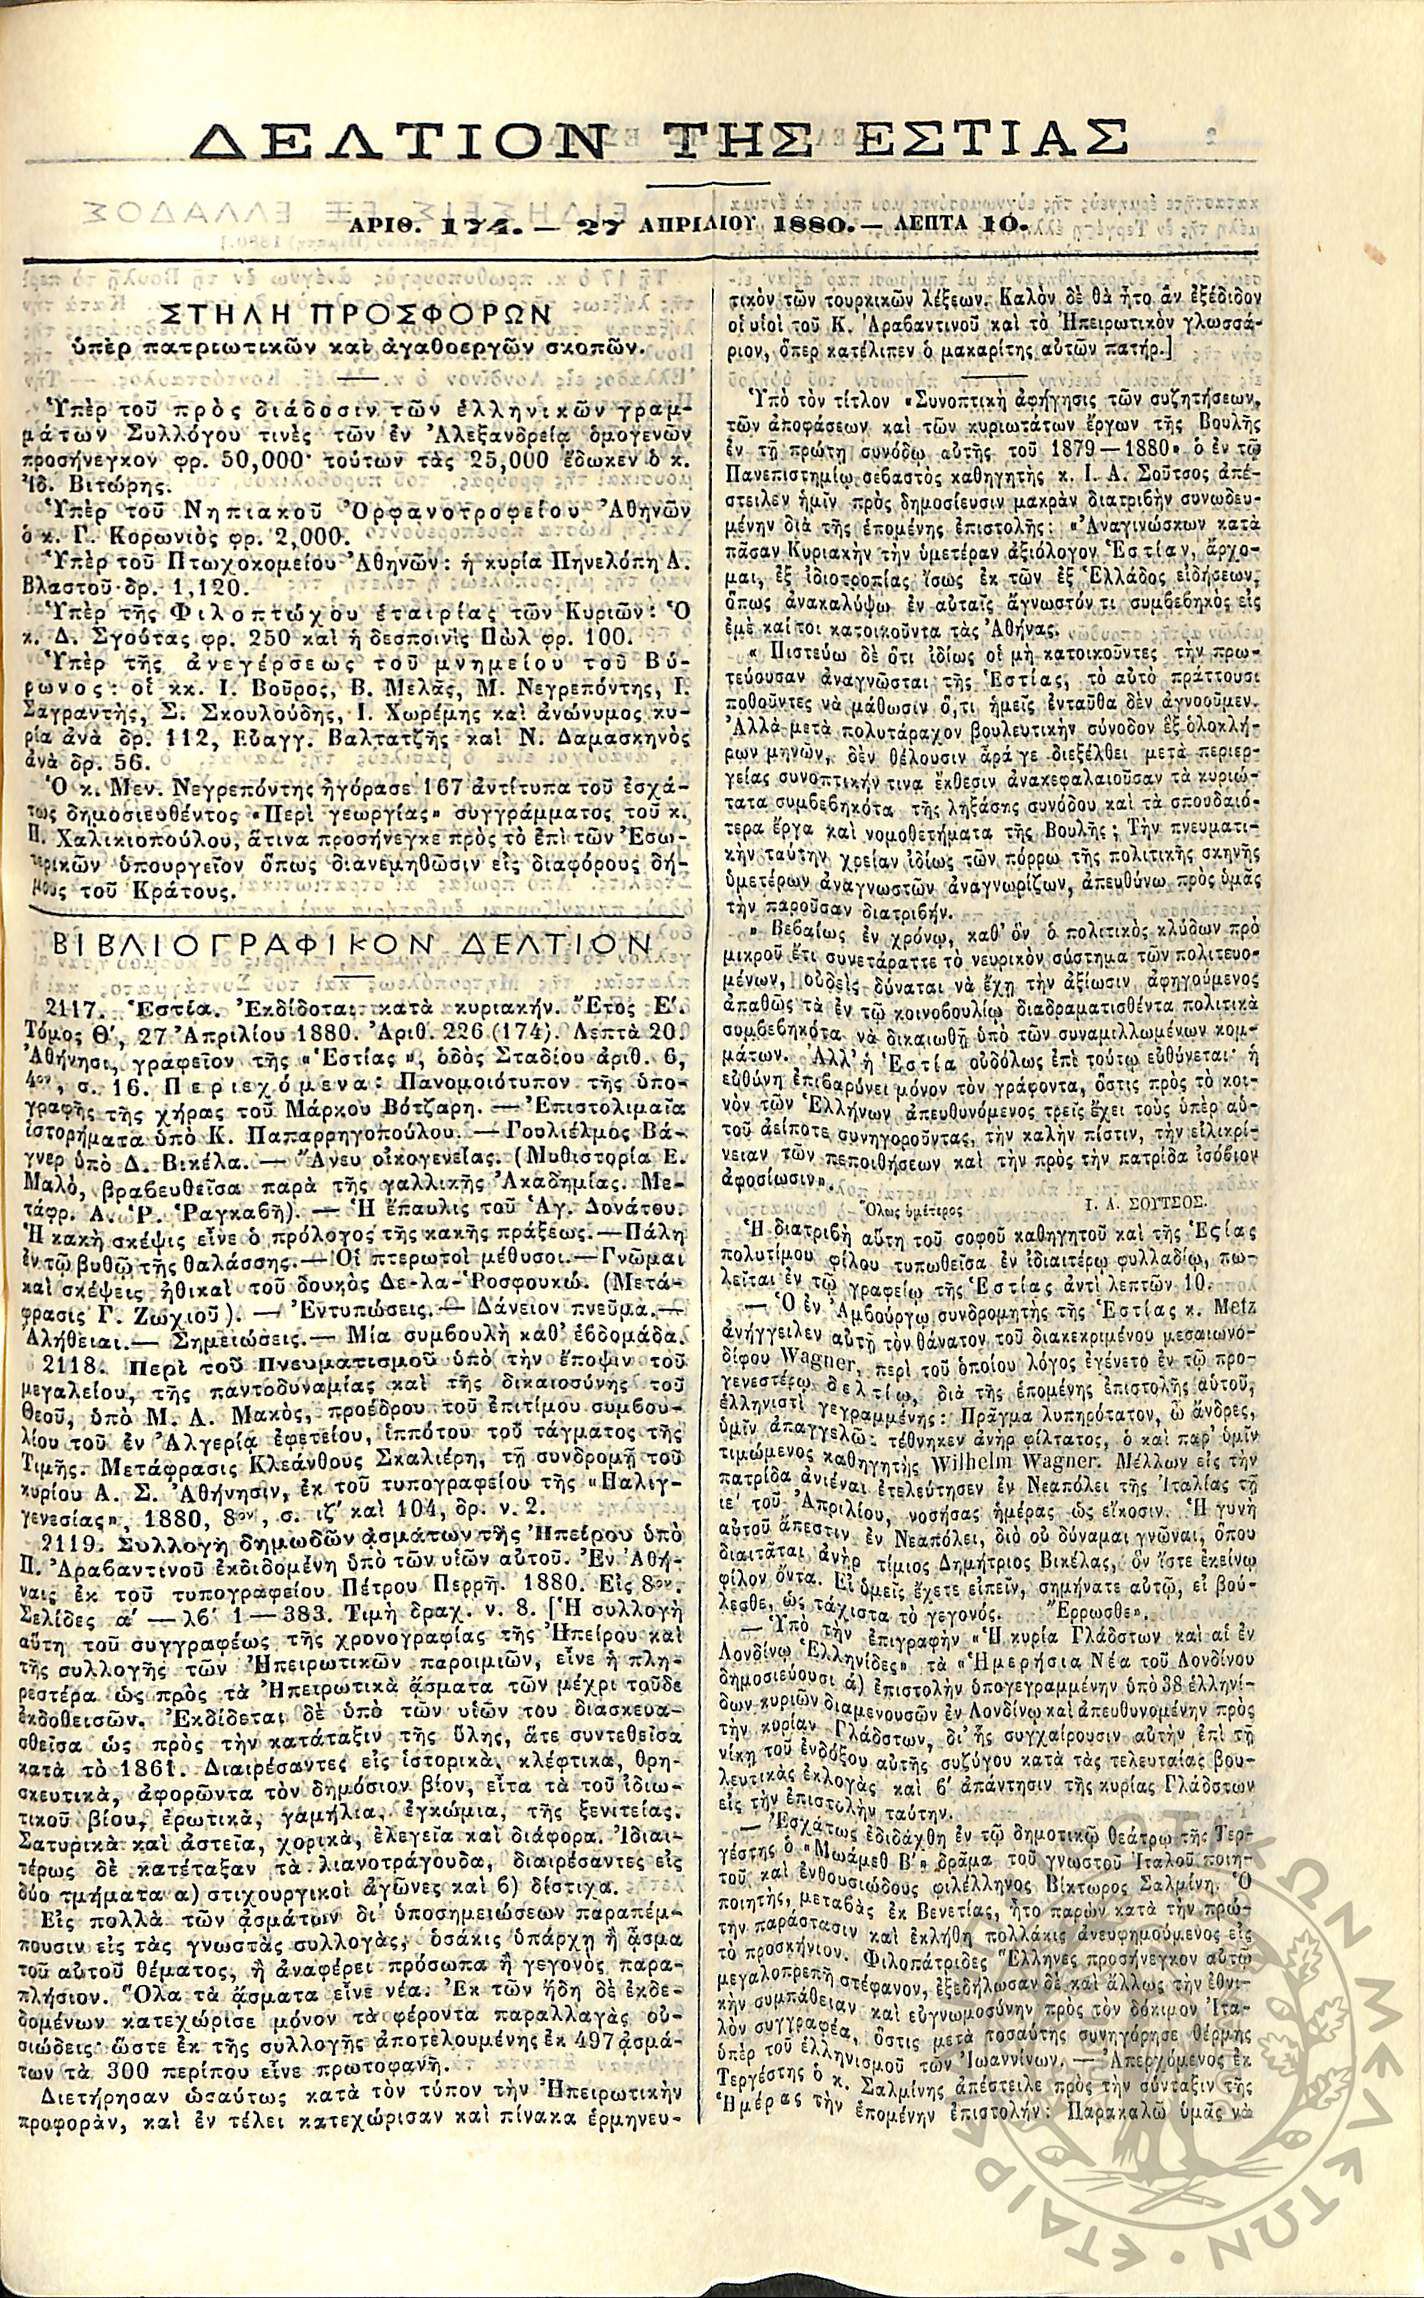 ΔΕΛΤΙΟΝ ΤΗΣ ΕΣΤΙΑΣ
ΑΡΙΘ. 174. — 27 ΑΠΡΙΛΙΟΥ 1880. — ΛΕΠΤΑ 10.
ΣΤΗΛΗ ΠΡΟΣΦΟΡΩΝ
ὑπὲρ πατριωτικῶν καὶ ἀγαθοεργῶν σκοπῶν.
Ὑπὲρ τοῦ πρὸς διάδοσιν τῶν ἑλληνικῶν γραμ-
μάτων Συλλόγου τινὲς τῶν ἐν Ἀλεξανδρείᾳ ὁμογενῶν
προσήνεγκον φρ. 50,000· τούτων τὰς 25,000 ἔδωκεν ὁ κ.
Ἰδ. Βιτώρης.
Ὑπὲρ τοῦ Νηπιακοῦ Ὀρφανοτροφείου Ἀθηνῶν
ὁ κ. Γ. Κορωνιὸς φρ. 2,000.
Ὑπὲρ τοῦ Πτωχοκομείου Ἀθηνῶν: ἡ κυρία Πηνελόπη Α.
Βλαστοῦ δρ. 1,120.
Ὑπὲρ τῆς Φιλοπτώχου ἑταιρίας τῶν Κυριῶν: Ὁ
κ. Δ. Σγούτας φρ. 250 καὶ ἡ δεσποινὶς Πὼλ φρ. 100.
Ὑπὲρ τῆς ἀνεγέρσεως τοῦ μνημείου τοῦ Βύ-
ρωνος: οἱ κκ. Ι. Βοῦρος, Β. Μελᾶς, Μ. Νεγρεπόντης, Ι.
Σαγραντῆς, Σ. Σκουλούδης, Ι. Χωρέμης καὶ ἀνώνυμος κυ-
ρία ἀνὰ δρ. 112, Εὐαγγ. Βαλτατζῆς καὶ Ν. Δαμασκηνὸς
ἀνὰ δρ. 56.
Ὁ κ. Μεν. Νεγρεπόντης ἠγόρασε 167 ἀντίτυπα τοῦ ἐσχά-
τως δημοσιευθέντος «Περὶ γεωργίας» συγγράμματος τοῦ κ.
Π. Χαλικιοπούλου, ἅτινα προσήνεγκε πρὸς τὸ ἐπὶ τῶν Ἐσω-
τερικῶν ὑπουργεῖον ὅπως διανεμηθῶσιν εἰς διαφόρους δή-
μους τοῦ Κράτους.
ΒΙΒΛΙΟΓΡΑΦΙΚΟΝ ΔΕΛΤΙΟΝ
2117. Ἑστία. Ἐκδίδοται κατὰ κυριακήν. Ἔτος Ε΄.
Τόμος Θ΄, 27 Ἀπριλίου 1880. Ἀριθ. 226 (174). Λεπτὰ 20.
Ἀθήνησι, γραφεῖον τῆς «Ἑστίας», ὁδὸς Σταδίου ἀριθ. 6,
4ον, σ. 16. Περιεχόμενα: Πανομοιότυπον τῆς ὑπο-
γραφῆς τῆς χήρας τοῦ Μάρκου Βότζαρη. — Ἐπιστολιμαῖα
ἱστορήματα ὑπὸ Κ. Παπαρρηγοπούλου. — Γουλιέλμος Βά-
γνερ ὑπὸ Δ. Βικέλα. — Ἄνευ οἰκογενείας. (Μυθιστορία Ε.
Μαλό, βραβευθεῖσα παρὰ τῆς γαλλικῆς Ἀκαδημίας. Με-
τάφρ. Α. Ῥ. Ῥαγκαβῆ). — Ἡ ἔπαυλις τοῦ Ἁγ. Δονάτου.
Ἡ κακὴ σκέψις εἶνε ὁ πρόλογος τῆς κακῆς πράξεως. — Πάλη
ἐν τῷ βυθῷ τῆς θαλάσσης. — Οἱ πτερωτοὶ μέθυσοι. — Γνῶμαι
καὶ σκέψεις ἠθικαὶ τοῦ δουκὸς Δε-λα-Ῥοσφουκώ. (Μετά-
φρασις Γ. Ζωχιοῦ). — Ἐντυπώσεις. — Δάνειον πνεῦμα. —
Ἀλήθειαι. — Σημειώσεις. — Μία συμβουλὴ καθ' ἑβδομάδα.
2118. Περὶ τοῦ Πνευματισμοῦ ὑπὸ τὴν ἔποψιν τοῦ
μεγαλείου, τῆς παντοδυναμίας καὶ τῆς δικαιοσύνης τοῦ
Θεοῦ, ὑπὸ Μ. Α. Μακὸς, προέδρου τοῦ ἐπιτίμου συμβου-
λίου τοῦ ἐν Ἀλγερίᾳ ἐφετείου, ἱππότου τοῦ τάγματος τῆς
Τιμῆς. Μετάφρασις Κλεάνθους Σκαλιέρη, τῇ συνδρομῇ τοῦ
κυρίου Α. Σ. Ἀθήνησιν, ἐκ τοῦ τυπογραφείου τῆς «Παλιγ-
γενεσίας», 1880, 8ον, σ. ιζ΄ καὶ 104, δρ. ν. 2.
2119. Συλλογὴ δημωδῶν ᾀσμάτων τῆς Ἠπείρου ὑπὸ
Π. Ἀραβαντινοῦ ἐκδιδομένη ὑπὸ τῶν υἱῶν αὐτοῦ. Ἐν Ἀθή-
ναις ἐκ τοῦ τυπογραφείου Πέτρου Περρῆ. 1880. Εἰς 8ον.
Σελίδες α΄ — λβ΄ 1 — 383. Τιμὴ δραχ. ν. 8. [Ἡ συλλογὴ
αὕτη τοῦ συγγραφέως τῆς χρονογραφίας τῆς Ἠπείρου καὶ
τῆς συλλογῆς τῶν Ἠπειρωτικῶν παροιμιῶν, εἶνε ἡ πλη-
ρεστέρα ὡς πρὸς τὰ Ἠπειρωτικὰ ᾄσματα τῶν μέχρι τοῦδε
ἐκδοθεισῶν. Ἐκδίδεται δὲ ὑπὸ τῶν υἱῶν του διασκευα-
σθεῖσα ὡς πρὸς τὴν κατάταξιν τῆς ὕλης, ἅτε συντεθεῖσα
κατὰ τὸ 1861. Διαιρέσαντες εἰς ἱστορικὰ, κλέφτικα, θρη-
σκευτικὰ, ἀφορῶντα τὸν δημόσιον βίον, εἶτα τὰ τοῦ ἰδιω-
τικοῦ βίου, ἐρωτικὰ, γαμήλια, ἐγκώμια, τῆς ξενιτείας.
Σατυρικὰ καὶ ἀστεῖα, χορικὰ, ἐλεγεῖα καὶ διάφορα. Ἰδιαι-
τέρως δὲ κατέταξαν τὰ λιανοτράγουδα, διαιρέσαντες εἰς
δύο τμήματα α) στιχουργικοὶ ἀγῶνες καὶ β) δίστιχα.
Εἰς πολλὰ τῶν ᾀσμάτων δι' ὑποσημειώσεων παραπέμ-
πουσιν εἰς τὰς γνωστὰς συλλογὰς, ὁσάκις ὑπάρχῃ ἢ ᾆσμα
τοῦ αὐτοῦ θέματος, ἢ ἀναφέρει πρόσωπα ἢ γεγονὸς παρα-
πλήσιον. Ὅλα τὰ ᾄσματα εἶνε νέα. Ἐκ τῶν ἤδη δὲ ἐκδε-
δομένων κατεχώρισε μόνον τὰ φέροντα παραλλαγὰς οὐ-
σιώδεις· ὥστε ἐκ τῆς συλλογῆς ἀποτελουμένης ἐκ 497 ᾀσμά-
των τὰ 300 περίπου εἶνε πρωτοφανῆ.
Διετήρησαν ὡσαύτως κατὰ τὸν τύπον τὴν Ἠπειρωτικὴν
προφορὰν, καὶ ἐν τέλει κατεχώρισαν καὶ πίνακα ἑρμηνευ-
τικὸν τῶν τουρκικῶν λέξεων. Καλὸν δὲ θὰ ἦτο ἂν ἐξέδιδον
οἱ υἱοὶ τοῦ Κ. Ἀραβαντινοῦ καὶ τὸ Ἠπειρωτικὸν γλωσσά-
ριον, ὅπερ κατέλιπεν ὁ μακαρίτης αὐτῶν πατήρ.]
Ὑπὸ τὸν τίτλον «Συνοπτικὴ ἀφήγησις τῶν συζητήσεων,
τῶν ἀποφάσεων καὶ τῶν κυριωτάτων ἔργων τῆς Βουλῆς
ἐν τῇ πρώτῃ συνόδῳ αὐτῆς τοῦ 1879 — 1880» ὁ ἐν τῷ
Πανεπιστημίῳ σεβαστὸς καθηγητὴς κ. Ι. Α. Σοῦτσος ἀπέ-
στειλεν ἡμῖν πρὸς δημοσίευσιν μακρὰν διατριβὴν συνωδευ-
μένην διὰ τῆς ἑπομένης ἐπιστολῆς: «Ἀναγινώσκων κατὰ
πᾶσαν Κυριακὴν τὴν ὑμετέραν ἀξιόλογον Ἑστίαν, ἄρχο-
μαι, ἐξ ἰδιοτροπίας ἴσως ἐκ τῶν ἐξ Ἑλλάδος εἰδήσεων,
ὅπως ἀνακαλύψω ἐν αὐταῖς ἄγνωστόν τι συμβεβηκὸς εἰς
ἐμὲ καίτοι κατοικοῦντα τὰς Ἀθήνας.
« Πιστεύω δὲ ὅτι ἰδίως οἱ μὴ κατοικοῦντες τὴν πρω-
τεύουσαν ἀναγνῶσται τῆς Ἑστίας, τὸ αὐτὸ πράττουσι
ποθοῦντες νὰ μάθωσιν ὅ,τι ἡμεῖς ἐνταῦθα δὲν ἀγνοοῦμεν.
Ἀλλὰ μετὰ πολυτάραχον βουλευτικὴν σύνοδον ἓξ ὁλοκλή-
ρων μηνῶν, δὲν θέλουσιν ἆρά γε διεξέλθει μετὰ περιερ-
γείας συνοπτικήν τινα ἔκθεσιν ἀνακεφαλαιοῦσαν τὰ κυριώ-
τατα συμβεβηκότα τῆς ληξάσης συνόδου καὶ τὰ σπουδαιό-
τερα ἔργα καὶ νομοθετήματα τῆς Βουλῆς; Τὴν πνευματι-
κὴν ταύτην χρείαν ἰδίως τῶν πόρρω τῆς πολιτικῆς σκηνῆς
ὑμετέρων ἀναγνωστῶν ἀναγνωρίζων, ἀπευθύνω πρὸς ὑμᾶς
τὴν παροῦσαν διατριβήν.
» Βεβαίως ἐν χρόνῳ, καθ' ὃν ὁ πολιτικὸς κλύδων πρὸ
μικροῦ ἔτι συνετάραττε τὸ νευρικὸν σύστημα τῶν πολιτευο-
μένων, οὐδεὶς δύναται νὰ ἔχῃ τὴν ἀξίωσιν ἀφηγούμενος
ἀπαθῶς τὰ ἐν τῷ κοινοβουλίῳ διαδραματισθέντα πολιτικὰ
συμβεβηκότα νὰ δικαιωθῇ ὑπὸ τῶν συναμιλλωμένων κομ-
μάτων. Ἀλλ' ἡ Ἑστία οὐδόλως ἐπὶ τούτῳ εὐθύνεται· ἡ
εὐθύνη ἐπιβαρύνει μόνον τὸν γράφοντα, ὅστις πρὸς τὸ κοι-
νὸν τῶν Ἑλλήνων ἀπευθυνόμενος τρεῖς ἔχει τοὺς ὑπὲρ αὐ-
τοῦ ἀείποτε συνηγοροῦντας, τὴν καλὴν πίστιν, τὴν εἰλικρί-
νειαν τῶν πεποιθήσεων καὶ τὴν πρὸς τὴν πατρίδα ἰσόβιον
ἀφοσίωσιν».
Ὅλως ὑμέτερος Ι. Α. ΣΟΥΤΣΟΣ.
Ἡ διατριβὴ αὕτη τοῦ σοφοῦ καθηγητοῦ καὶ τῆς Ἑστίας
πολυτίμου φίλου τυπωθεῖσα ἐν ἰδιαιτέρῳ φυλλαδίῳ, πω-
λεῖται ἐν τῷ γραφείῳ τῆς Ἑστίας ἀντὶ λεπτῶν 10.
— Ὁ ἐν Ἀμβούργῳ συνδρομητὴς τῆς Ἑστίας κ. Metz
ἀνήγγειλεν αὐτῇ τὸν θάνατον τοῦ διακεκριμένου μεσαιωνο-
δίφου Wagner, περὶ τοῦ ὁποίου λόγος ἐγένετο ἐν τῷ προ-
γενεστέρῳ δελτίῳ, διὰ τῆς ἑπομένης ἐπιστολῆς αὐτοῦ,
ἑλληνιστὶ γεγραμμένης: Πρᾶγμα λυπηρότατον, ὦ ἄνδρες,
ὑμῖν ἀπαγγελῶ: τέθνηκεν ἀνὴρ φίλτατος, ὁ καὶ παρ' ὑμῖν
τιμώμενος καθηγητὴς Wilhelm Wagner. Μέλλων εἰς τὴν
πατρίδα ἀνιέναι ἐτελεύτησεν ἐν Νεαπόλει τῆς Ἰταλίας τῇ
ιε΄ τοῦ Ἀπριλίου, νοσήσας ἡμέρας ὡς εἴκοσιν. Ἡ γυνὴ
αὐτοῦ ἄπεστιν ἐν Νεαπόλει, διὸ οὐ δύναμαι γνῶναι, ὅπου
διαιτᾶται ἀνὴρ τίμιος Δημήτριος Βικέλας, ὃν ἴστε ἐκείνῳ
φίλον ὄντα. Εἰ ὑμεῖς ἔχετε εἰπεῖν, σημήνατε αὐτῷ, εἰ βού-
λεσθε, ὡς τάχιστα τὸ γεγονός. Ἔρρωσθε».
— Ὑπὸ τὴν ἐπιγραφὴν «Ἡ κυρία Γλάδστων καὶ αἱ ἐν
Λονδίνῳ Ἑλληνίδες» τὰ «Ἡμερήσια Νέα τοῦ Λονδίνου
δημοσιεύουσι ά) ἐπιστολὴν ὑπογεγραμμένην ὑπὸ 38 ἑλληνί-
δων κυριῶν διαμενουσῶν ἐν Λονδίνῳ καὶ ἀπευθυνομένην πρὸς
τὴν κυρίαν Γλάδστων, δι' ἧς συγχαίρουσιν αὐτὴν ἐπὶ τῇ
νίκῃ τοῦ ἐνδόξου αὐτῆς συζύγου κατὰ τὰς τελευταίας βου-
λευτικὰς ἐκλογὰς καὶ β΄ ἀπάντησιν τῆς κυρίας Γλάδστων
εἰς τὴν ἐπιστολὴν ταύτην.
— Ἐσχάτως ἐδιδάχθη ἐν τῷ δημοτικῷ θεάτρῳ τῆς Τερ-
γέστης ὁ «Μωάμεθ Β΄» δρᾶμα τοῦ γνωστοῦ Ἰταλοῦ ποιη-
τοῦ καὶ ἐνθουσιώδους φιλέλληνος Βίκτωρος Σαλμίνη. Ὁ
ποιητὴς, μεταβὰς ἐκ Βενετίας, ἦτο παρὼν κατὰ τὴν πρώ-
την παράστασιν καὶ ἐκλήθη πολλάκις ἀνευφημούμενος εἰς
τὸ προσκήνιον. Φιλοπάτριδες Ἕλληνες προσήνεγκον αὐτῷ
μεγαλοπρεπῆ στέφανον, ἐξεδήλωσαν δὲ καὶ ἄλλως τὴν ἐθνι-
κὴν συμπάθειαν καὶ εὐγνωμοσύνην πρὸς τὸν δόκιμον Ἰτα-
λὸν συγγραφέα, ὅστις μετὰ τοσαύτης συνηγόρησε θέρμης
ὑπὲρ τοῦ ἑλληνισμοῦ τῶν Ἰωαννίνων. — Ἀπερχόμενος ἐκ
Τεργέστης ὁ κ. Σαλμίνης ἀπέστειλε πρὸς τὴν σύνταξιν τῆς
Ἡμέρας τὴν ἑπομένην ἐπιστολήν: Παρακαλῶ ὑμᾶς νὰ